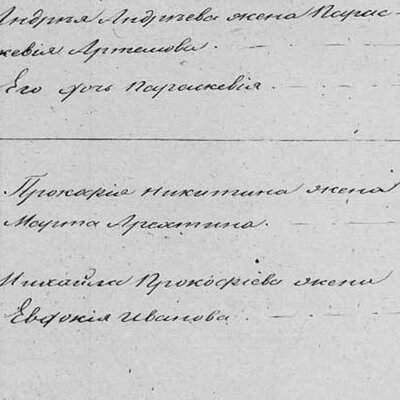 Андрея Андреева жена Парас-
кевія Артемова.
Его дочь Параскевія.
Прокофія Никитина жена
Марта
Михайла Прокофіева жена
Евдокія Иванова